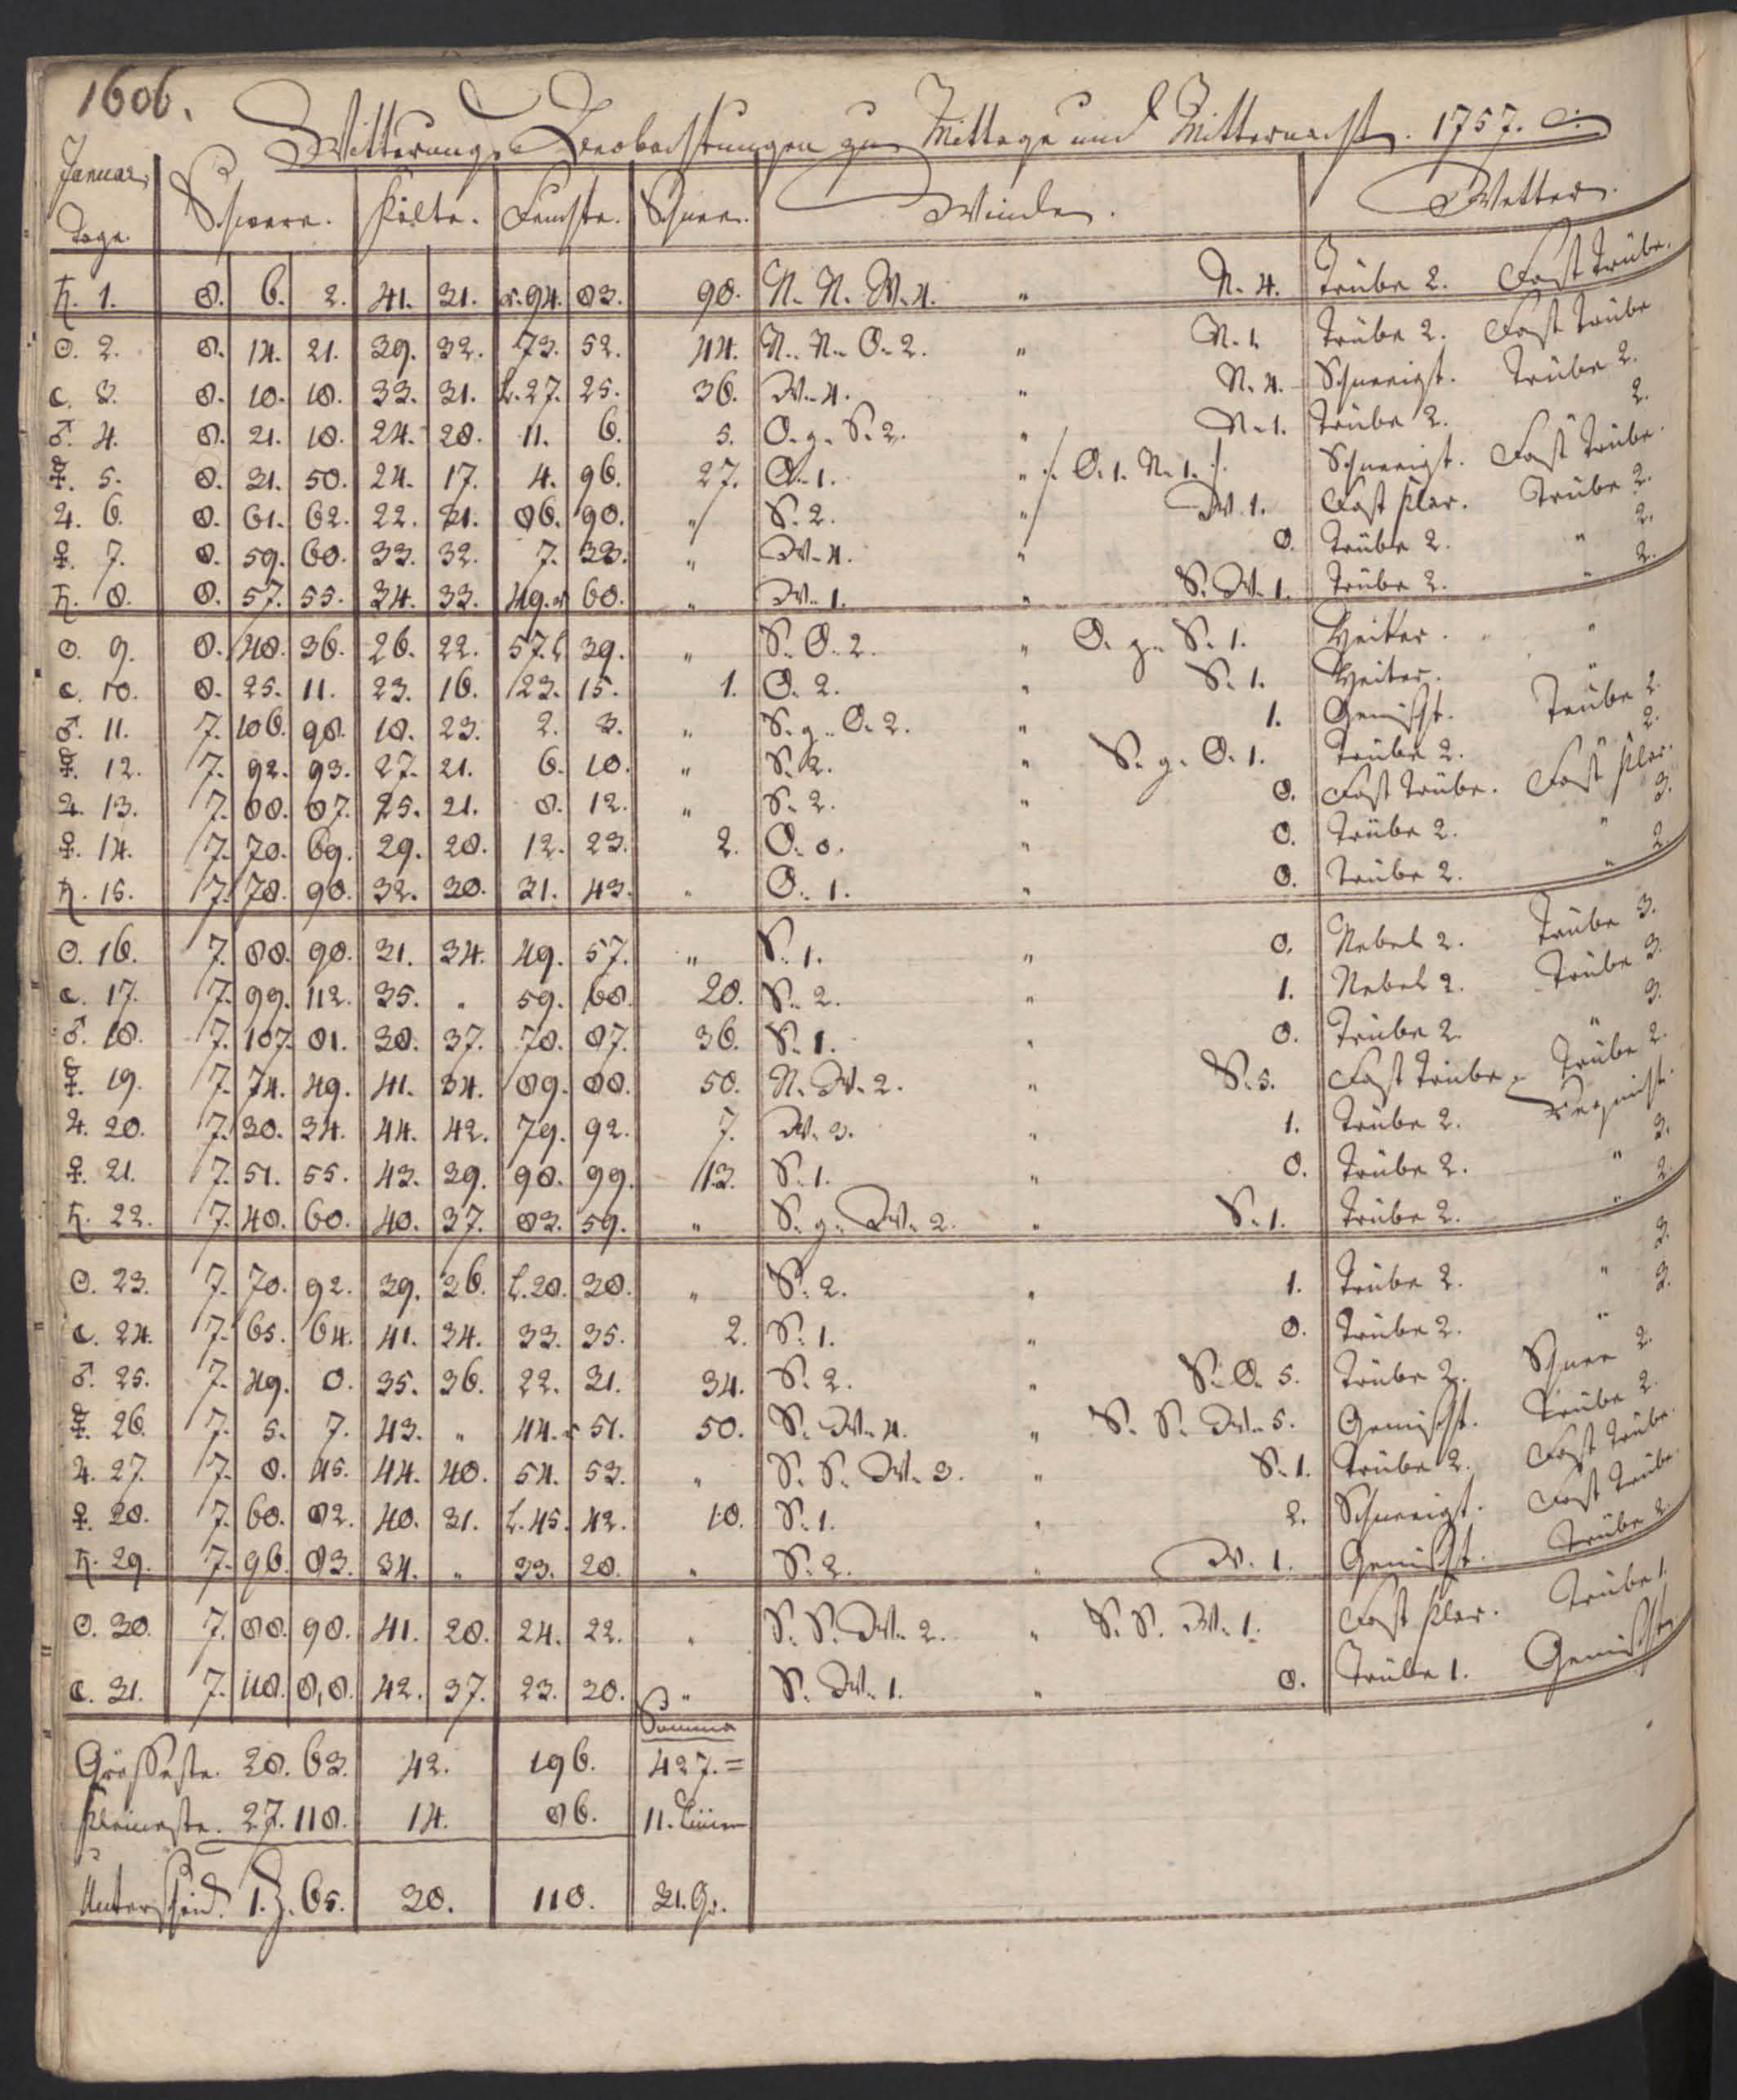 1606.
Witterungs Beobachtungen zu Mittage und Mitternacht. 1757.
Januar. Tage. Schwere. Kälte. Feuchte. Schnee. Winde. Wetter.
♄. 1. 8. 6. 2. 41. 31. r. 94. 83. 98. N. N. W. 4. " N. 4. Trübe 2. Fast trübe.
☉. 2. 8. 14. 21. 39. 32. 73. 52. 44. N. N. O. 2. " N. 1. Trübe 2. Fast trübe
☾. 3. 8. 10. 18. 33. 31. L. 27. 25. 36. W. 4. " N. 4. Schneeigt. Trübe 2.
♂. 4. 8. 21. 18. 24. 28. 11. 6. 5. O. g. S. 2. " N. 1. Trübe 2. 2.
☿. 5. 8. 31. 50. 24. 17. 4. 96. 27. O. 1. " /. O. 1. N. 1. /. Schneeigt. Fast trübe.
♃. 6. 8. 61. 62. 22. 21. 86. 90. " S. 2. " W. 1. Fast klar. Trübe 2.
♀. 7. 8. 59. 60. 33. 32. 7. 33. " W. 4. " 0. Trübe 2. " 2.
♄. 8. 8. 57. 55. 34. 33. 49. r 60. " W. 1. " S. W. 1. Trübe 2. " 2.
☉. 9. 8. 48. 36. 26. 22. 57. L 39. " S. O. 2. " O. g. S. 1. Heiter. "
☾. 10. 8. 25. 11. 23. 16. 23. 15. 1. O. 2. " S. 1. Heiter. "
♂. 11. 7. 106. 98. 18. 23. 2. 3. " S. g. O. 2. " 1. Gemischt. Trübe 2.
☿. 12. 7. 92. 93. 27. 21. 6. 10. " S. 2. " S. g. O. 1. Trübe 2. 2.
♃. 13. 7. 88. 87. 25. 21. 8. 12. " S. 2. " 0. Fast trübe. Fast klar.
♀. 14. 7. 70. 69. 29. 28. 12. 23. 2. O. 0. " 0. Trübe 2. " 3.
♄. 15. 7. 78. 90. 32. 30. 31. 43. " O. 1. " 0. Trübe 2. " 2.
☉. 16. 7. 88. 90. 31. 34. 49. 57. " S. 1. " 0. Nebel 2. Trübe 3.
☾. 17. 7. 99. 112. 35. " 59. 68. 20. S. 2. " 1. Nebel 2. Trübe 3.
♂. 18. 7. 107. 81. 38. 37. 78. 87. 36. S. 1. " 0. Trübe 2. " 3.
☿. 19. 7. 74. 49. 41. 34. 89. 88. 50. N. W. 2. " S. 5. Fast trübe. Trübe 2.
♃. 20. 7. 30. 34. 44. 42. 79. 92. 7. W. 3. " 1. Trübe 2. Regnicht.
♀. 21. 7. 51. 55. 43. 39. 98. 99. 13. S. 1. " 0. Trübe 2. " 3.
♄. 22. 7. 48. 60. 40. 37. 83. 59. " S. g. W. 2. " S. 1. Trübe 2. " 2.
☉. 23. 7. 70. 92. 39. 36. L. 28. 38. " S. 2. " 1. Trübe 2. " 3.
☾. 24. 7. 65. 64. 41. 34. 33. 35. 2. S. 1. " 0. Trübe 2. " 3.
♂. 25. 7. 49. 0. 35. 36. 22. 31. 34. S. 2. " S. O. 5. Trübe 2. Schnee 2.
☿. 26. 7. 5. 7. 43. " 44. r 51. 50. S. W. 4. " S. S. W. 5. Gemischt. Trübe 2.
♃. 27. 7. 8. 45. 44. 40. 54. 53. " S. S. W. 3. " S. 1. Trübe 2. Fast trübe.
♀. 28. 7. 60. 82. 40. 31. L. 45. 42. 10. S. 1. " 2. Schneeigt. Fast trübe.
♄. 29. 7. 96. 83. 34. " 33. 28. " S. 2. " W. 1. Gemischt. Trübe 2.
☉. 30. 7. 88. 98. 41. 28. 24. 22. " S. S. W. 2. " S. S. W. 1. Fast klar. Trübe 1.
☾. 31. 7. 118. 8,8. 42. 37. 23. 20. " S. W. 1. " 0. Trübe 1. Gemischt.
Summa
Grösseste. 28. 63. 42. 196. 427. =
Kleineste. 27. 118. 14. 86. 11. Linien
Unterscheid. 1. Z. 65. 28. 110. 31. Gr.